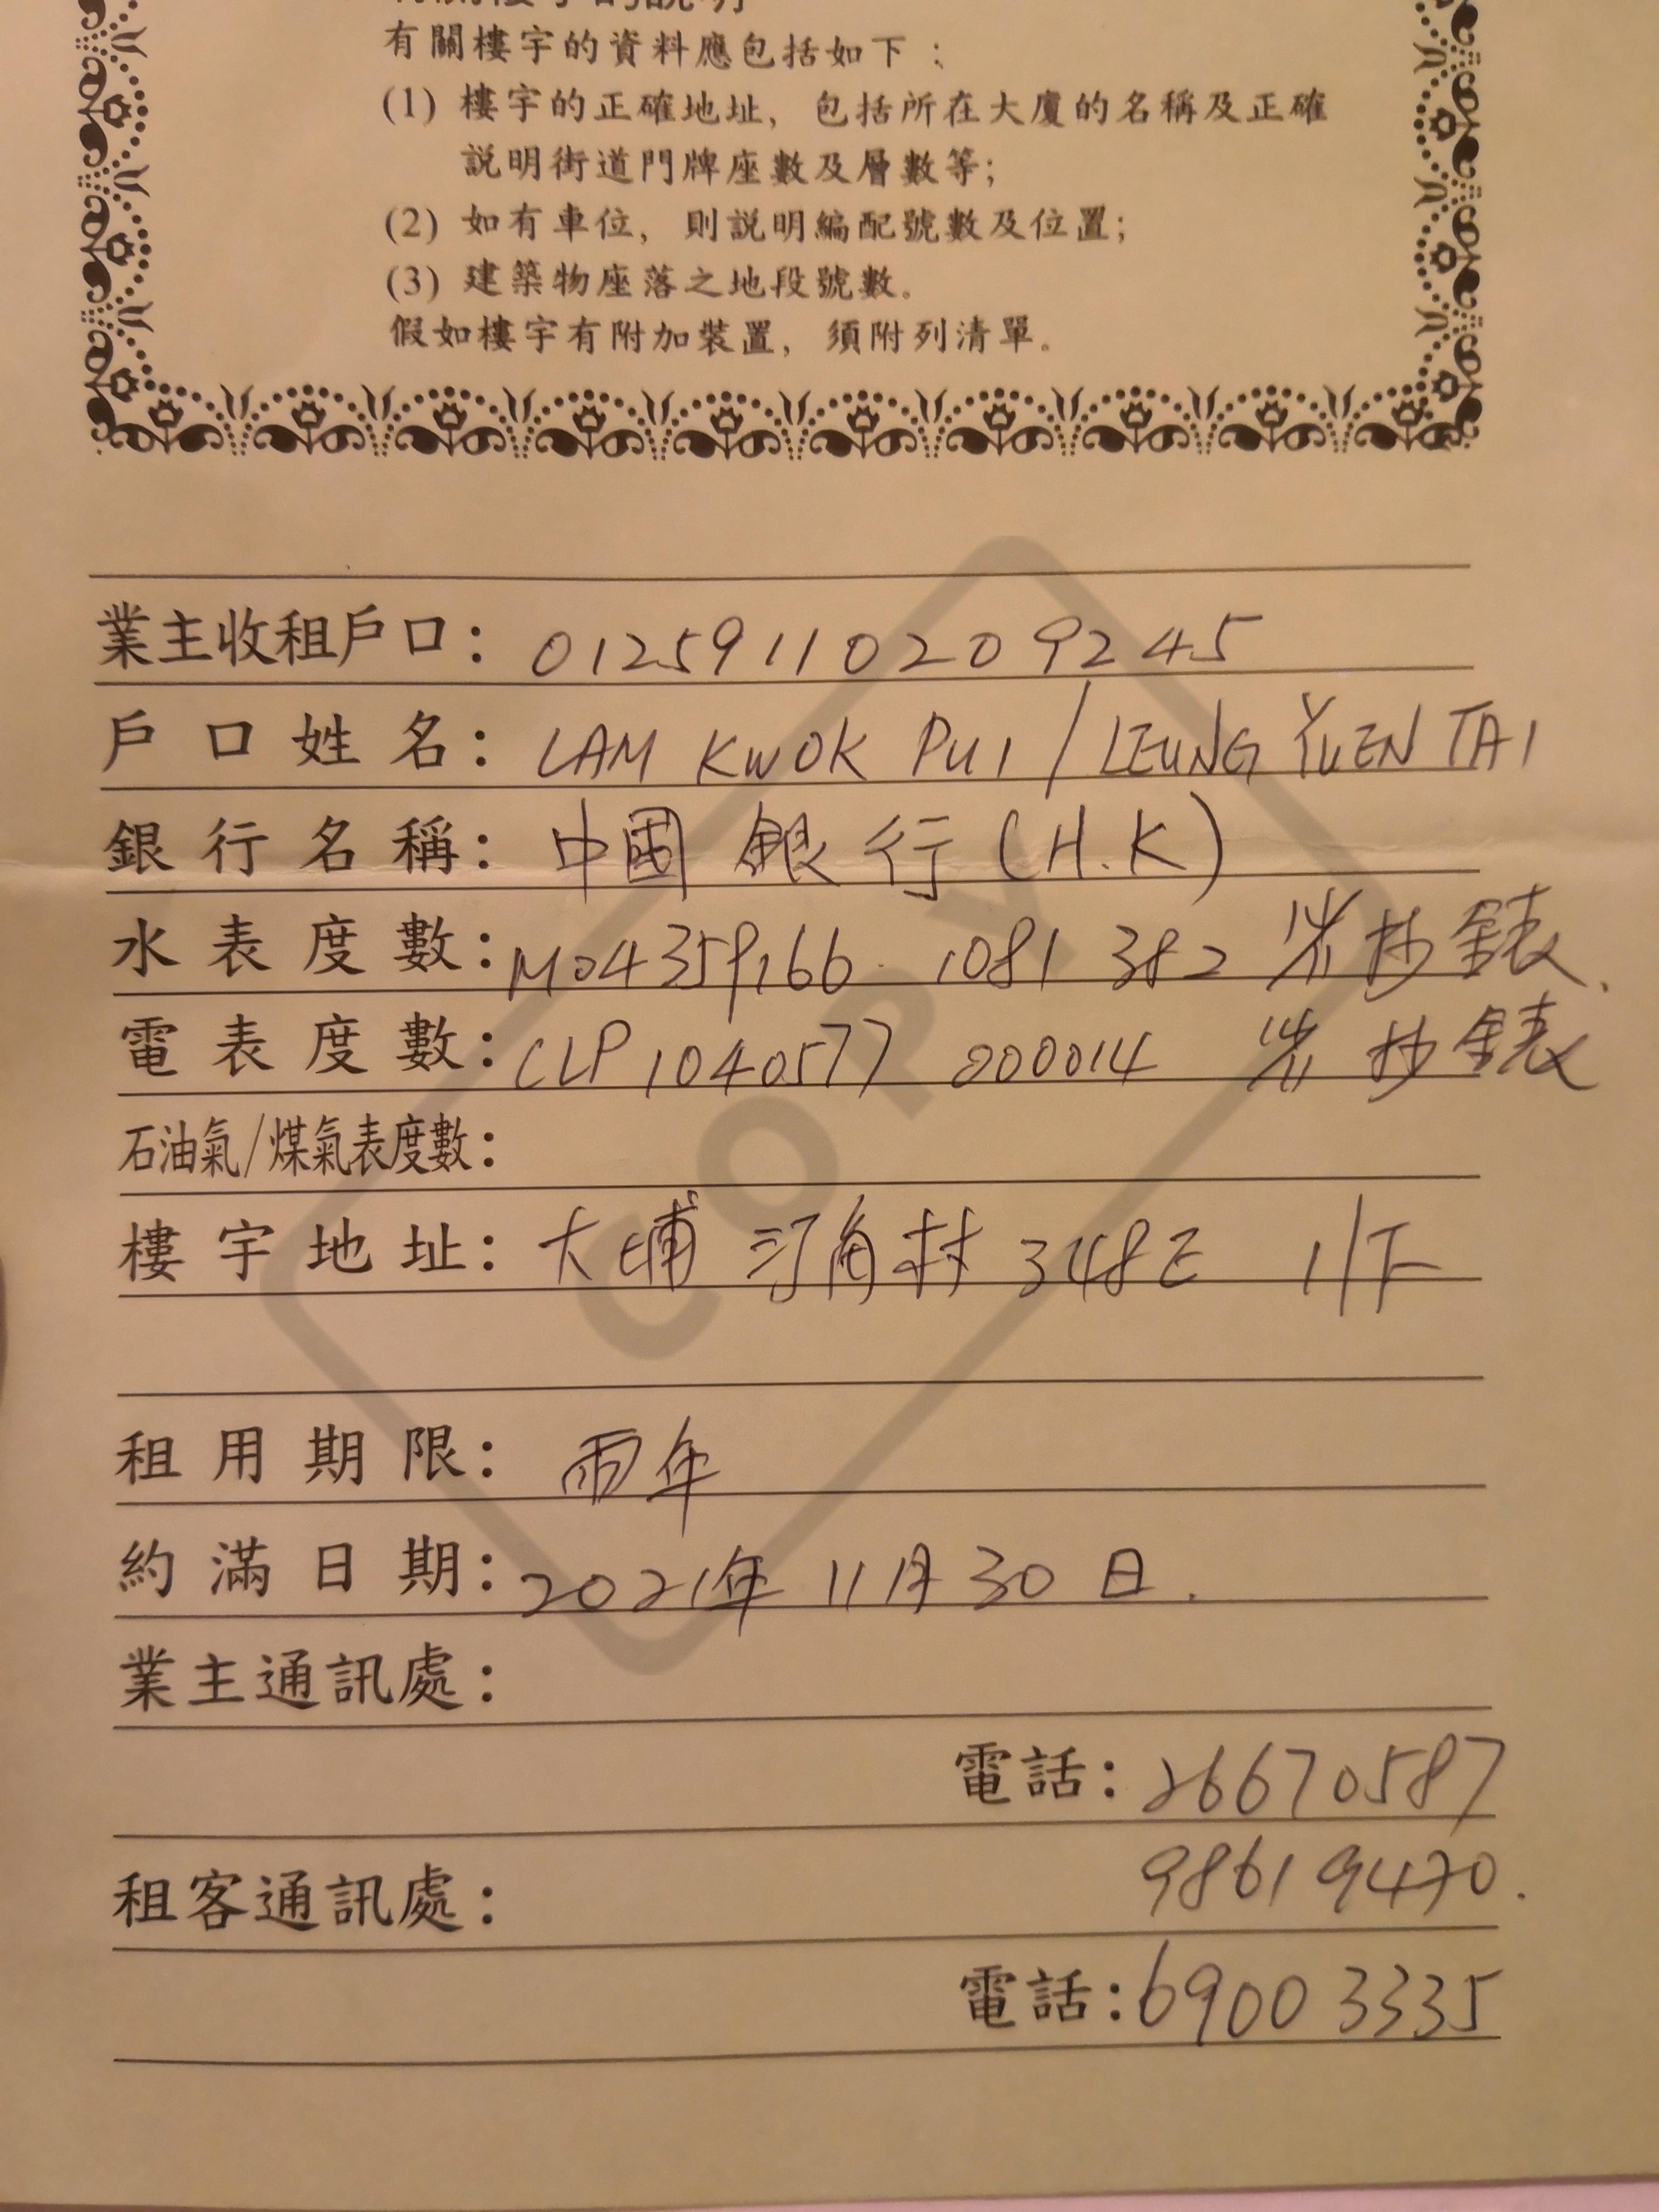 有關樓宇的資料應包括如下：
(1) 樓宇的正確地址，包括所在大廈的名稱及正確
說明街道門牌座數及層數等；
(2) 如有車位，則說明編配號數及位置；
(3) 建築物座落之地段號數。
假如樓宇有附加裝置，須附列清單。
業主收租戶口：01259110209245
戶口姓名：LAM KWOK PUI / LEUNG YUEN TAI
銀行名稱：中國銀行(H.K)
水表度數：M04359166 1081 382 抄錶
電表度數：CLP 1040577 000014 抄錶
石油氣/煤氣表度數：
樓宇地址：大埔 汀角村 348E 1/下
租用期限：兩年
約滿日期：2021年11月30日.
業主通訊處：
電話：26670587
98619470.
租客通訊處：
電話：6900 3335
COPY